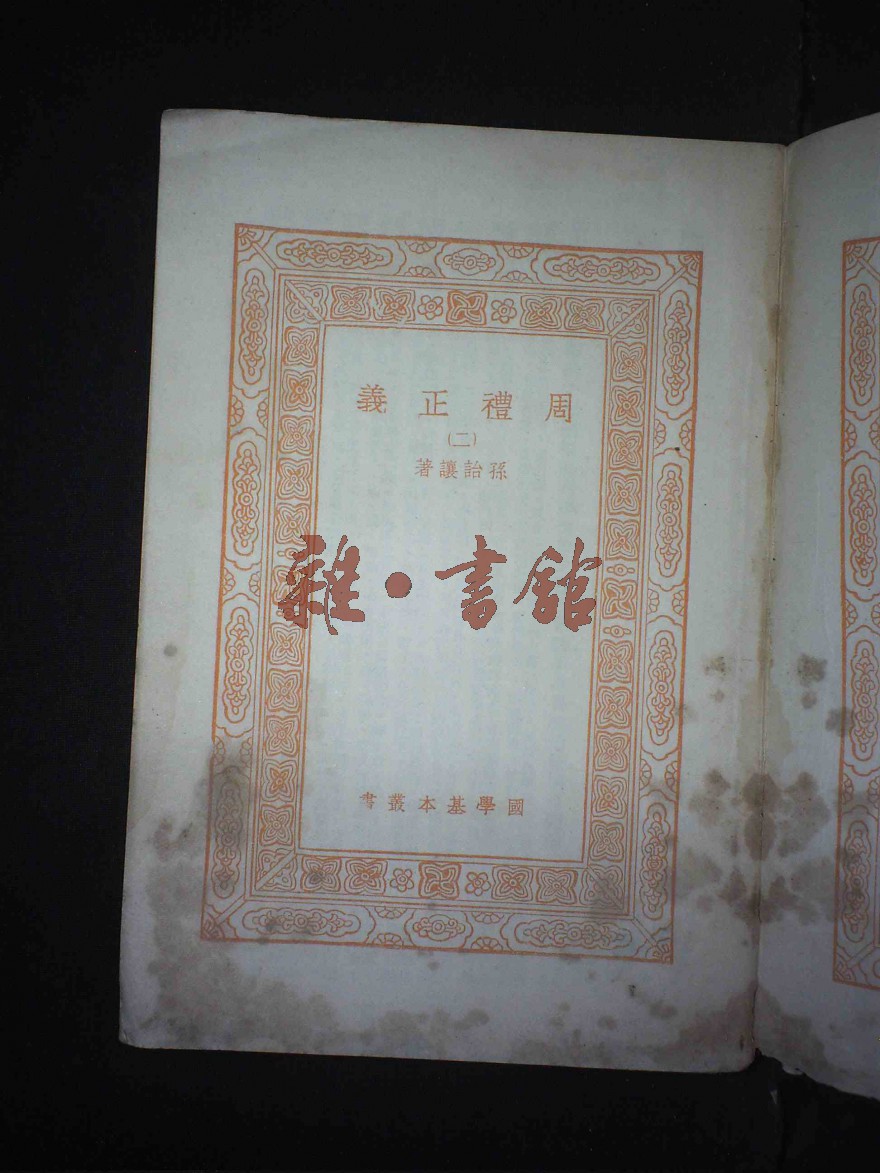 周禮正義
(二)
孫詒讓著
雜·書館
國學基本叢書